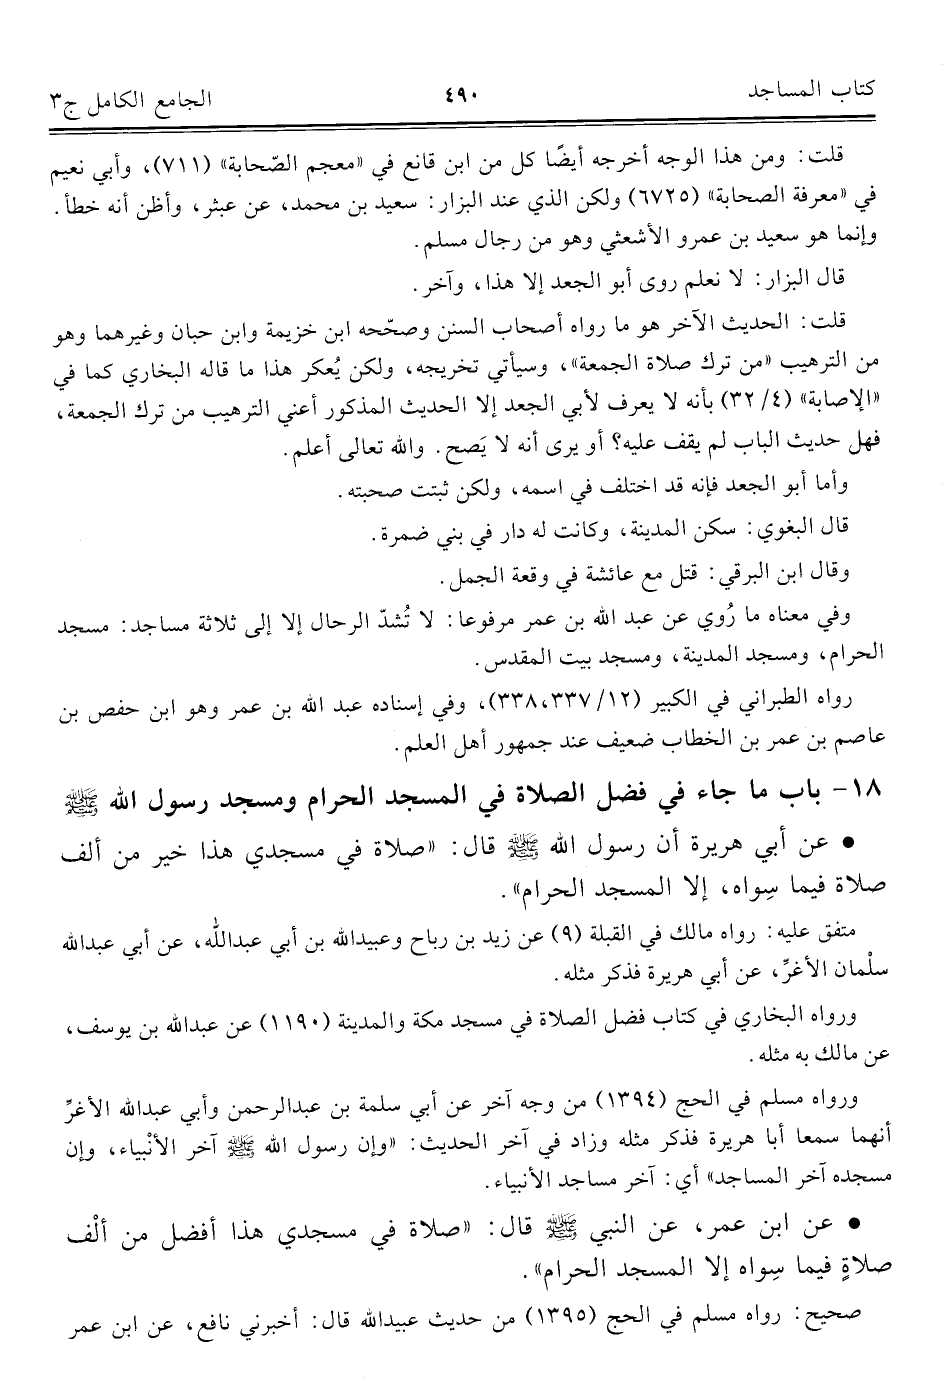 كتاب المساجد ٤٩٠ الجامع الكامل ج٣
قلت: ومن هذا الوجه أخرجه أيضًا كل من ابن قانع في «معجم الصّحابة» (٧١١)، وأبي نعيم
في «معرفة الصحابة» (٦٧٢٥) ولكن الذي عند البزار: سعيد بن محمد، عن عبثر، وأظن أنه خطأ.
وإنما هو سعيد بن عمرو الأشعثي وهو من رجال مسلم.
قال البزار: لا نعلم روى أبو الجعد إلا هذا، وآخر.
قلت: الحديث الآخر هو ما رواه أصحاب السنن وصحّحه ابن خزيمة وابن حبان وغيرهما وهو
من الترهيب «من ترك صلاة الجمعة»، وسيأتي تخريجه، ولكن يُعكر هذا ما قاله البخاري كما في
«الإصابة» (٤/ ٣٢) بأنه لا يعرف لأبي الجعد إلا الحديث المذكور أعني الترهيب من ترك الجمعة،
فهل حديث الباب لم يقف عليه؟ أو يرى أنه لا يَصح. والله تعالى أعلم.
وأما أبو الجعد فإنه قد اختلف في اسمه، ولكن ثبتت صحبته.
قال البغوي: سكن المدينة، وكانت له دار في بني ضمرة.
وقال ابن البرقي: قتل مع عائشة في وقعة الجمل.
وفي معناه ما رُوي عن عبد الله بن عمر مرفوعا: لا تُشدّ الرحال إلا إلى ثلاثة مساجد: مسجد
الحرام، ومسجد المدينة، ومسجد بيت المقدس.
رواه الطبراني في الكبير (١٢/ ٣٣٧،٣٣٨)، وفي إسناده عبد الله بن عمر وهو ابن حفص بن
عاصم بن عمر بن الخطاب ضعيف عند جمهور أهل العلم.
١٨- باب ما جاء في فضل الصلاة في المسجد الحرام ومسجد رسول الله ﷺ
• عن أبي هريرة أن رسول الله ﷺ قال: «صلاة في مسجدي هذا خير من ألف
صلاة فيما سِواه، إلا المسجد الحرام».
متفق عليه: رواه مالك في القبلة (٩) عن زيد بن رباح وعبيدالله بن أبي عبدالله، عن أبي عبدالله
سلْمان الأغرِّ، عن أبي هريرة فذكر مثله.
ورواه البخاري في كتاب فضل الصلاة في مسجد مكة والمدينة (١١٩٠) عن عبدالله بن يوسف،
عن مالك به مثله.
ورواه مسلم في الحج (١٣٩٤) من وجه آخر عن أبي سلمة بن عبدالرحمن وأبي عبدالله الأغرِّ
أنهما سمعا أبا هريرة فذكر مثله وزاد في آخر الحديث: «وإن رسول الله ﷺ آخر الأنْبياء، وإن
مسجده آخر المساجد» أي: آخر مساجد الأنبياء.
• عن ابن عمر، عن النبي ﷺ قال: «صلاة في مسجدي هذا أفضل من ألْف
صلاةٍ فيما سِواه إلا المسجد الحرام».
صحيح: رواه مسلم في الحج (١٣٩٥) من حديث عبيدالله قال: أخبرني نافع، عن ابن عمر